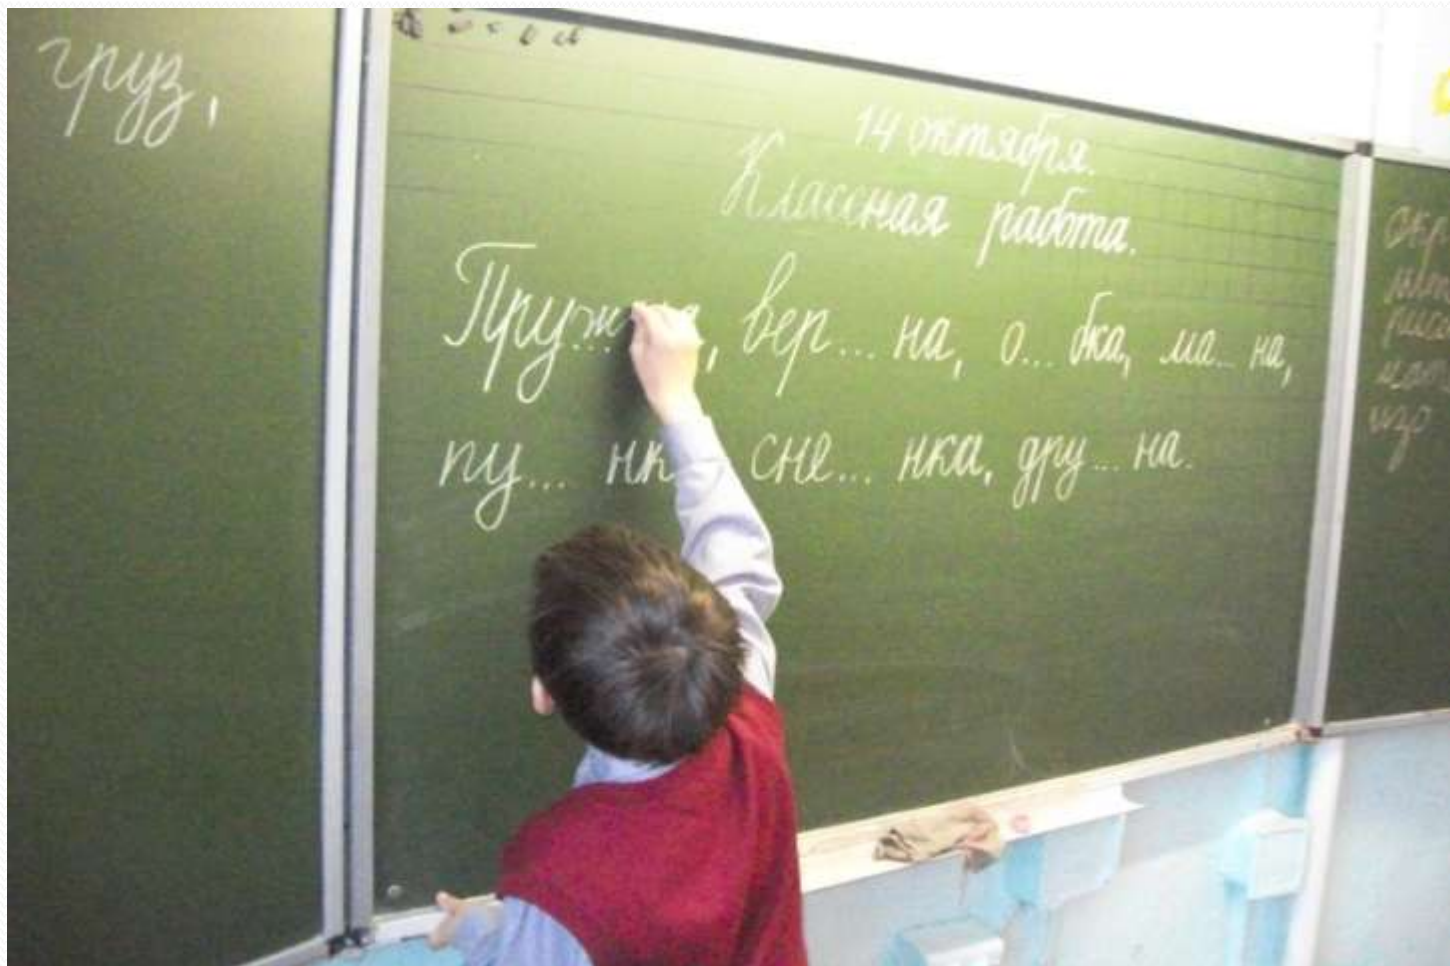 груз,
14 октября.
Классная работа.
вер... на, о... бка, ма... на,
пу... нк сне... нка, дру... на.